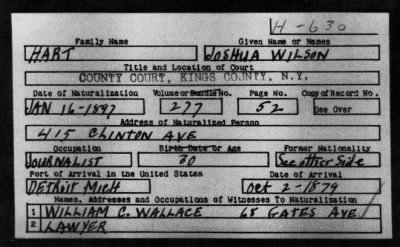 H-630
Family Name Given Name or Names
HART JOSHUA WILSON
Title and Location of Court
COUNTY COURT, KINGS COUNTY, N.Y.
Date of Naturalization Volume or Bundle No. Page No. Copy of Record No.
JAN 16-1897 277 52 See Over
Address of Naturalized Person
415 CLINTON AVE
Occupation Birth Date or Age Former Nationality
JOURNALIST 30 See other Side
Port of Arrival in the United States Date of Arrival
DETROIT MICH Oct 2-1879
Names, Addresses and Occupations of Witnesses To Naturalization
1 WILLIAM C. WALLACE 68 GATES AVE
2 LAWYER